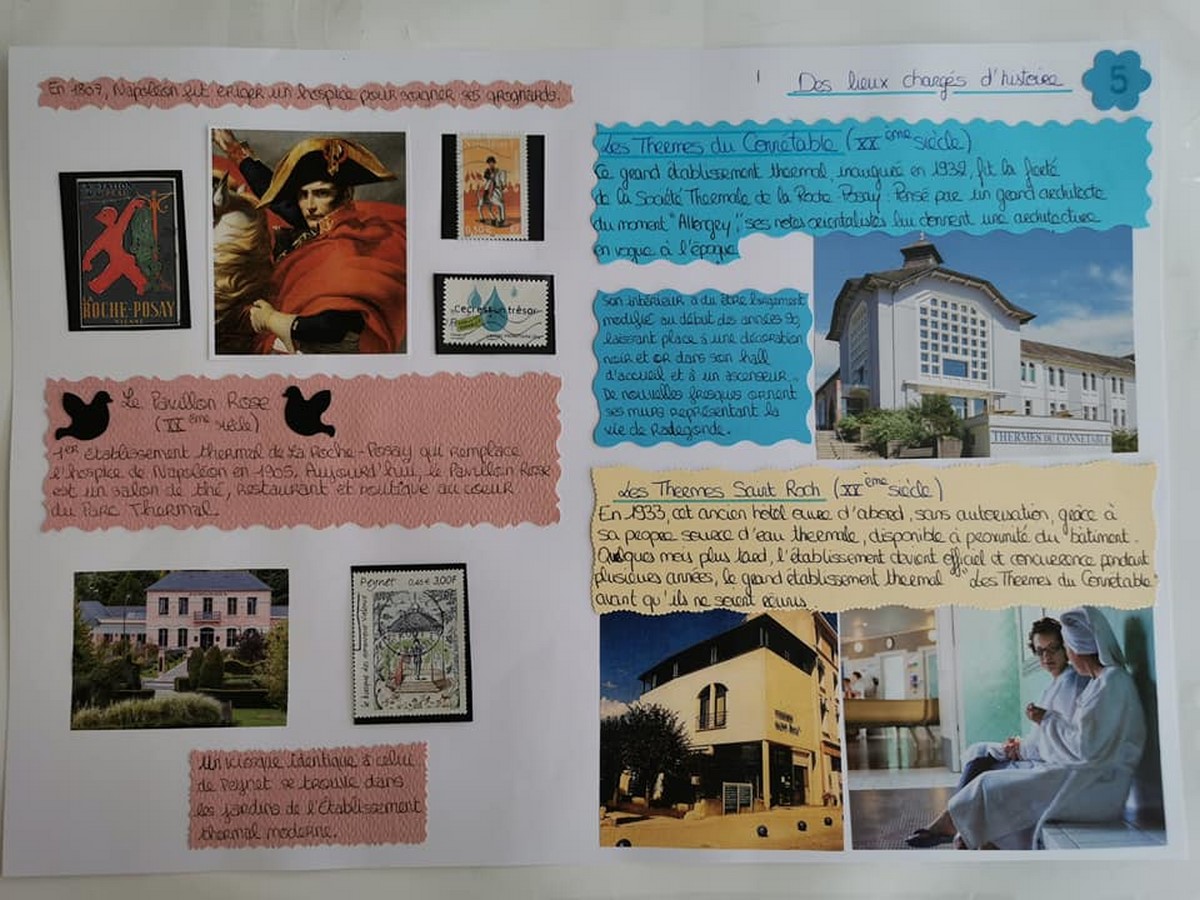 En 1807, Napoléon fit ériger un hospice pour soigner ses grognards.
LA
ROCHE-POSAY
VIENNE
0,50€
Cecrest un trésor
Le Pavillon Rose
(XXème siècle)
1er établissement thermal de La Roche-Posay qui remplace
l'hospice de Napoléon en 1905. Aujourd'hui, le Pavillon Rose
est un salon de thé, restaurant et boutique au coeur
du Parc Thermal.
Peynet 0,45€ 3,00F
le kiosque des amoureux Valence
Un kiosque identique à celui
de Peynet se trouve dans
les jardins de l'Établissement
thermal moderne.
Des lieux chargés d'histoire
5
Les Thermes du Connétable (XXème siècle)
Ce grand établissement thermal, inauguré en 1932, fit la fierté
de la Société Thermale de la Roche-Posay. Pensé par un grand architecte
du moment "Allorgey", ses notes orientalistes lui donnent une architecture
en vogue à l'époque.
Son intérieur a du être largement
modifié au début des années 90,
laissant place à une décoration
noir et OR dans son hall
d'accueil et à un ascenseur.
De nouvelles fresques ornent
ses murs représentant la
vie de Radegonde.
THERMES DU CONNETABLE
Les Thermes Saint Roch (XXème siècle)
En 1933, cet ancien hôtel ouvre d'abord, sans autorisation, grâce à
sa propre source d'eau thermale, disponible à proximité du bâtiment.
Quelques mois plus tard, l'établissement devient officiel et concurrence pendant
plusieurs années, le grand établissement thermal "Les Thermes du Connétable"
avant qu'ils ne soient réunis.